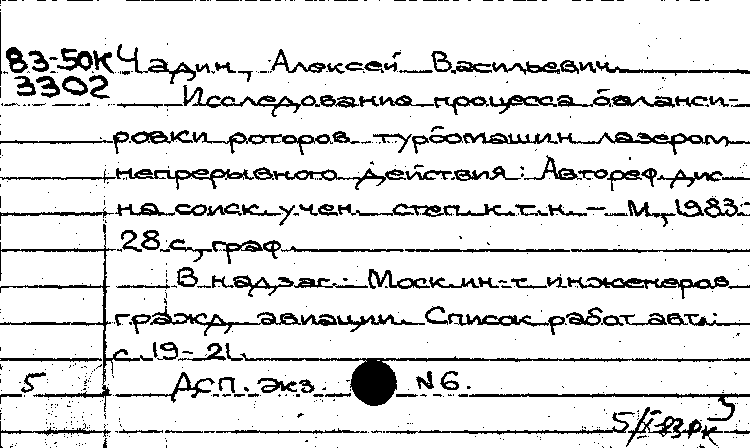 83-50К Чадин, Алексей Васильевич.
3302
Исследование процесса баланси-
ровки роторов турбомашин лазером
непрерывного действия: Автореф. дис
на соиск. учен. степ. к.т.н. - М., 1983-
28 с., граф.
В надзаг.: Моск. ин-т инженеров
гражд. авиации. Список работ авт.:
с. 19-21.
5 ДСП. экз. N 6.